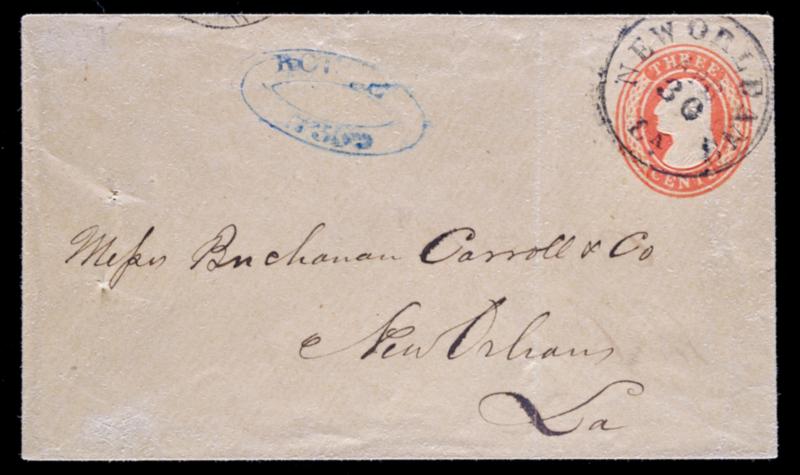 NEW ORLEANS
30
LA
THREE
CENTS
Messrs Buchanan Carroll & Co
New Orleans
La